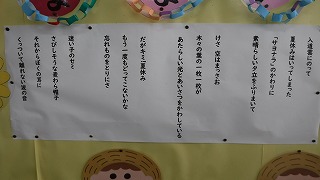 入道雲にのって
夏休みはいってしまった
「サヨナラ」のかわりに
素晴らしい夕立をふりまいて
けさ 空はまっさお
木々の葉の一枚一枚が
あたらしい光とあいさつをかわしている
だがキミ!夏休みよ
もう一度もどってこないかな
忘れものをとりにさ
迷い子のセミ
さびしそうな麦わら帽子
それから ぼくの耳に
くっついて離れない波の音